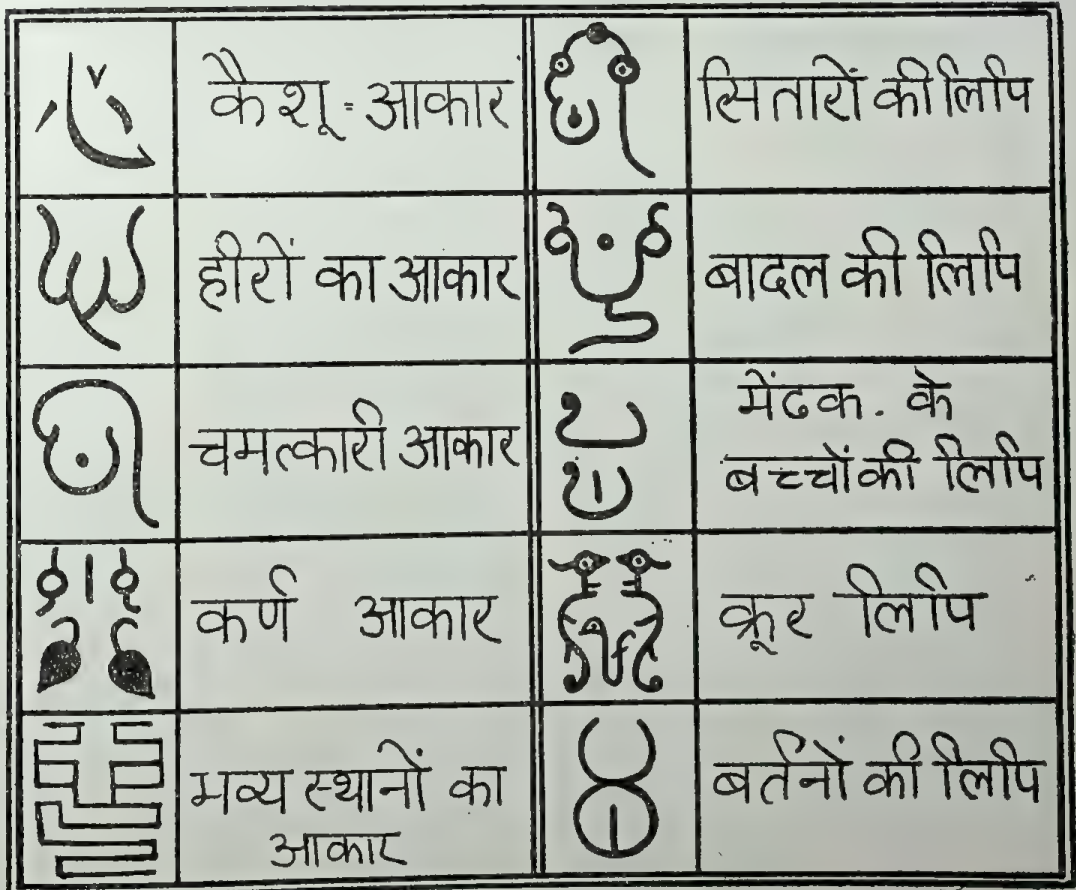 कैशू = आकार
सितारों की लिपि
हीरों का आकार
बादल की लिपि
चमत्कारी आकार
मेंढक. के
बच्चों की लिपि
कर्ण आकार
क्रूर लिपि
मव्य स्थानों का
आकार
बर्तनों की लिपि